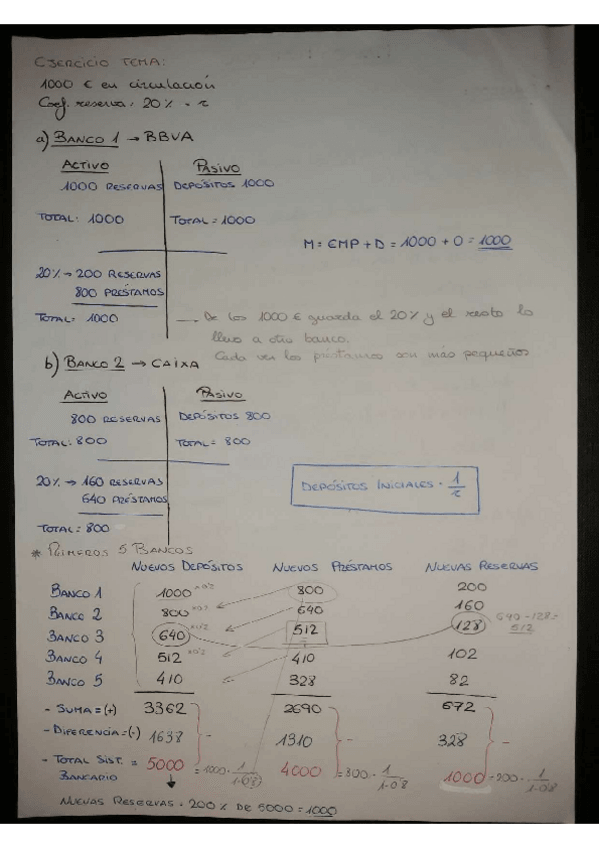 EJERCICIO TEMA:
1000 € en circulación
Coef. reserva: 20% = r
a) BANCO 1 → BBVA
ACTIVO PASIVO
1000 RESERVAS DEPÓSITOS 1000
TOTAL: 1000 TOTAL = 1000
M = EMP + D = 1000 + 0 = 1000
20% → 200 RESERVAS
800 PRÉSTAMOS
TOTAL: 1000
De los 1000 € guarda el 20% y el resto lo
llevo a otro banco.
Cada vez los préstamos son más pequeños
b) BANCO 2 → CAIXA
ACTIVO PASIVO
800 RESERVAS DEPÓSITOS 800
TOTAL: 800 TOTAL = 800
20% → 160 RESERVAS
640 PRÉSTAMOS
DEPÓSITOS INICIALES · 1/r
TOTAL: 800
* PRIMEROS 5 BANCOS
NUEVOS DEPÓSITOS NUEVOS PRÉSTAMOS NUEVAS RESERVAS
BANCO 1 1000 ×0'2 800 200
BANCO 2 800 ×0'2 640 160
BANCO 3 640 ×0'2 512 128 640-128= 512
BANCO 4 512 ×0'2 410 102
BANCO 5 410 328 82
- SUMA = (+) 3362 2690 672
- DIFERENCIA = (-) 1638 1310 328
- TOTAL SIST. = 5000 = 1000 · 1/1-0'8 4000 = 800 · 1/1-0'8 1000 = 200 · 1/1-0'8
BANCARIO
NUEVAS RESERVAS = 200% DE 5000 = 1000